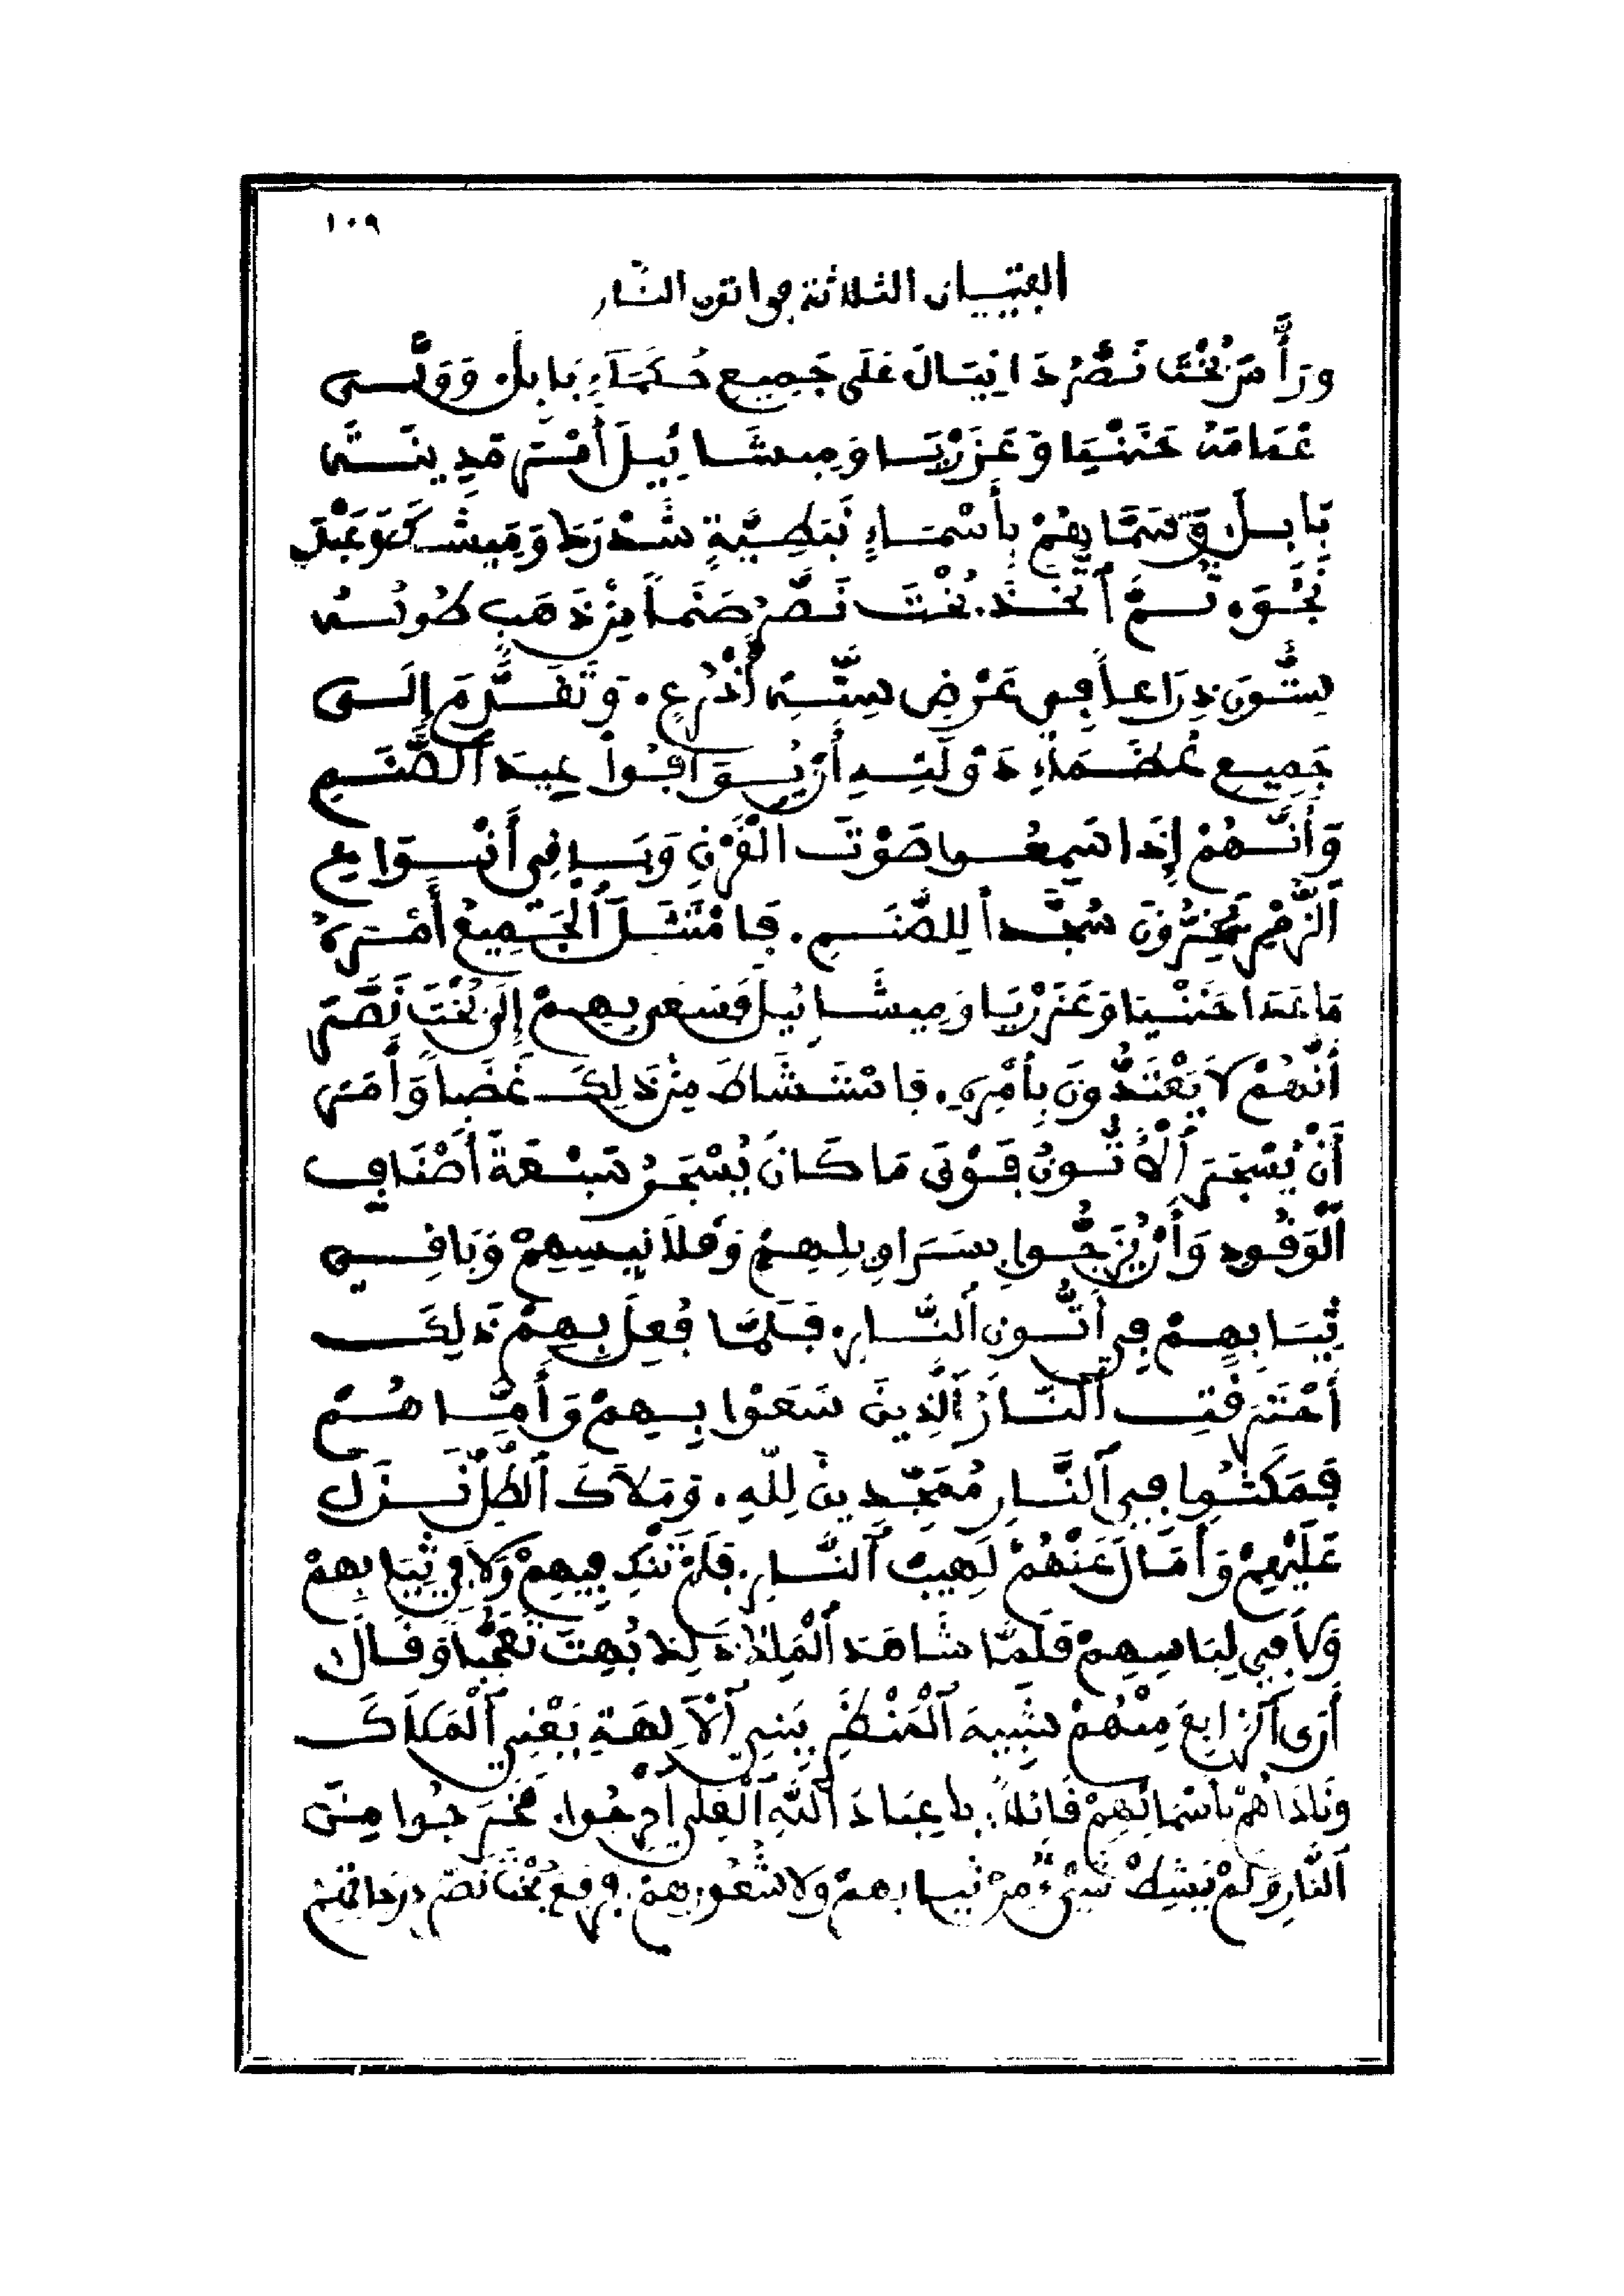 ١٠٩
الفتيان الثلاثة في اتون النار
ورَأَّسَ بُخْتَ نَصَّرُ دَانِيَالَ عَلَى جَمِيعِ حُكَمَآءِ بَابِلَ. وَوَلَّى
عَمَامَهُ حَنَنْيَا وَعَزَرْيَا وَمِيشَائِيلَ أَمْرَ مَدِينَةِ
بَابِلَ وَسَمَّاهُمْ بِأَسْمَاءٍ نَبَطِيَّةٍ شَدْرَخَ وَمِيشَكَ وَعَبْدَ
نَحْوَ. ثُمَّ ٱتَّخَذَ. بُخْتَ نَصَّرُ صَنَماً مِنْ ذَهَبٍ طُولُهُ
سِتُّونَ ذِرَاعاً فِي عَرْضِ سِتَّةِ أَذْرُعٍ. وَتَقَدَّمَ إِلَى
جَمِيعِ عُظَمَاءِ دَوْلَتِهِ أَنْ يُوَافُوا عِيدَ ٱلصَّنَمِ
وَأَنَّهُمْ إِذَا سَمِعُوا صَوْتَ الْقَرْنِ وَبَاقِي أَنْوَاعِ
ٱلزَّمْرِ يَخِرُّونَ سُجَّداً لِلصَّنَمِ. فَامْتَثَلَ ٱلْجَمِيعُ أَمْرَهُ
مَا عَدَا حَنَنْيَا وَعَزَرْيَا وَمِيشَائِيلَ فَسَعَى بِهِمْ إِلَى بُخْتَ نَصَّرَ
أَنَّهُمْ لَا يَعْتَدُّونَ بِأَمْرِهِ. فَاسْتَشَاطَ مِنْ ذَلِكَ غَضَباً وَأَمَرَ
أَنْ يُسْجَرَ ٱلْأَتُّونُ فَوْقَ مَا كَانَ يُسْجَرُ سَبْعَةَ أَضْعَافٍ
ٱلْوَقُودِ وَأَنْ يُزَجُّوا بِسَرَاوِيلِهِمْ وَقَلَانِيسِهِمْ وَبَاقِي
ثِيَابِهِمْ فِي أَتُّونِ ٱلنَّارِ. فَلَمَّا فُعِلَ بِهِمْ ذَلِكَ
أَحْتَرَقَتِ ٱلنَّارُ ٱلَّذِينَ سَعَوْا بِهِمْ وَأَمَّا هُمْ
فَمَكَثُوا فِي ٱلنَّارِ مُمَجِّدِينَ لِلَّهِ. وَمَلَاكَ ٱلطَّلِّ نَزَلَ
عَلَيْهِمْ وَأَمَالَ عَنْهُمْ لَهِيبَ ٱلنَّارِ. فَلَمْ تَنْكِ فِيهِمْ وَلَا فِي ثِيَابِهِمْ
وَلَا فِي لِبَاسِهِمْ فَلَمَّا شَاهَدَ ٱلْمَلِكُ ذَلِكَ بُهِتَ تَعَجُّباً وَقَالَ
أَرَى ٱلرَّابِعَ مِنْهُمْ شَبِيهَ ٱلْمَنْظَرِ بِبَنِي ٱلْآلِهَةِ يَعْنِي ٱلْمَلَاكَ
وَنَادَاهُمْ بِأَسْمَائِهِمْ قَائِلاً: يا عِبَادَ ٱللَّهِ ٱلْعَلِي ٱخْرُجُوا. فَخَرَجُوا مِنَ
ٱلنَّارِ وَلَمْ يَشِطْ شَيْءٌ مِنْ ثِيَابِهِمْ وَلَا شُعُورِهِمْ. فَرَفَعَ بُخْتَ نَصَّرَ دَرَجَاتِهِمْ